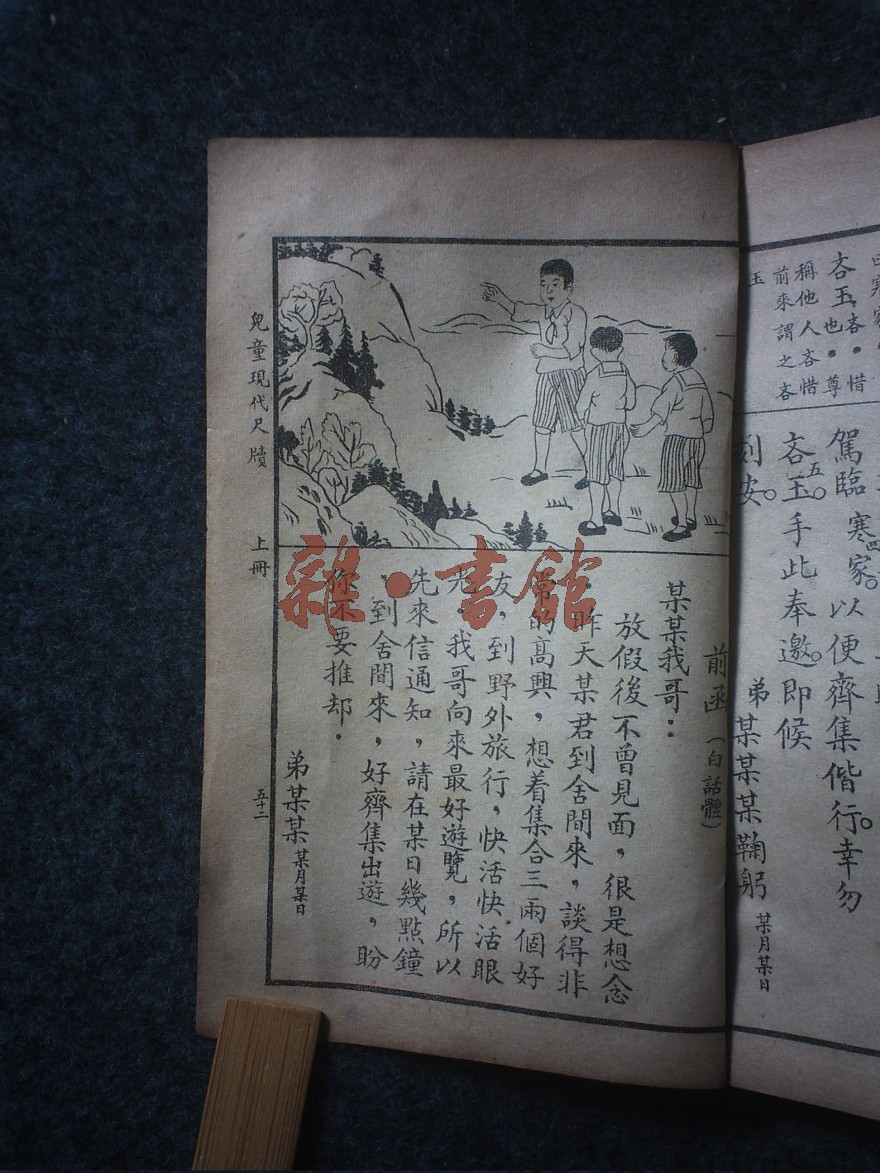 吝玉 吝•惜也•尊
稱他人吝惜
前來謂之吝
玉
駕臨 寒四家。以便齊集偕行。幸勿
吝五玉。手此奉邀。即候
刻安。
弟某某某鞠躬 某月某日
前函（白話體）
某某我哥：
放假後不曾見面，很是想念
，昨天某君到舍間來，談得非
常的高興，想着集合三兩個好
友，到野外旅行，快活快活眼
光，我哥向來最好遊覽，所以
先來信通知，請在某日幾點鐘
，到舍間來，好齊集出遊，盼
你不要推却．
弟某某 某月某日
兒童現代尺牘 上冊 五十二
雜·書館